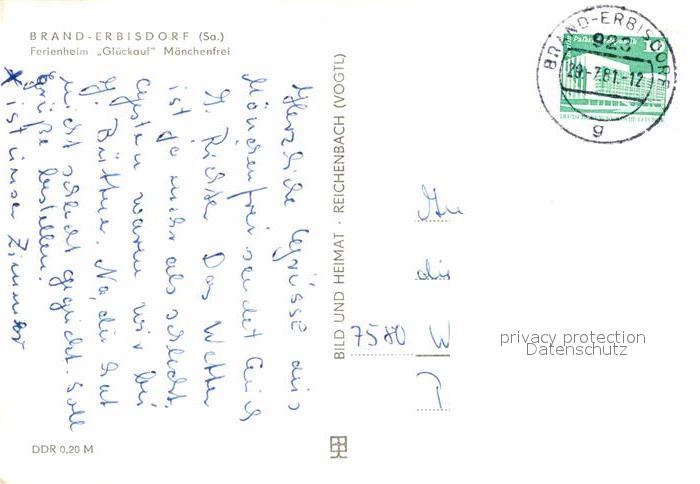 BRAND-ERBISDORF (Sa.)
Ferienheim „Glückauf" Mönchenfrei
Herzliche Grüsse aus
Mönchenfrei sendet Euch
G. Richter Das Wetter
ist ja mehr als schlecht.
waren wir bei
G. Büttner. Na, die hat
nicht schlecht geguckt. Soll
Grüße bestellen.
x ist unser Zimmer
DDR 0,20 M
BILD UND HEIMAT · REICHENBACH (VOGTL)
BRAND-ERBISDORF
-7.81.-12
g
10
An
die
7580 W
privacy protection
Datenschutz